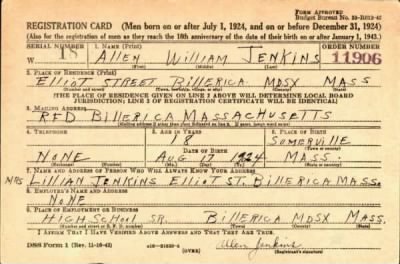 FORM APPROVED
REGISTRATION CARD (Men born on or after July 1, 1924, and on or before December 31, 1924)
(Also for the registration of men as they reach the 18th anniversary of the date of their birth on or after January 1, 1943.)
SERIAL NUMBER 1. NAME (Print) ORDER NUMBER
W 18 ALLEN WILLIAM JENKINS 11906
(First) (Middle) (Last)
2. PLACE OF RESIDENCE (Print)
ELLIOT STREET BILLERICA MDSX MASS
(Number and street) (Town, township, village, or city) (County) (State)
(THE PLACE OF RESIDENCE GIVEN ON LINE 2 ABOVE WILL DETERMINE LOCAL BOARD
JURISDICTION; LINE 2 OF REGISTRATION CERTIFICATE WILL BE IDENTICAL)
3. MAILING ADDRESS
RFD BILLERICA MASSACHUSETTS
4. TELEPHONE 5. AGE IN YEARS 6. PLACE OF BIRTH
18 SOMERVILLE
DATE OF BIRTH (Town or county)
NONE AUG 17 1924 MASS.
(Exchange) (Number) (Mo.) (Day) (Yr.) (State or country)
7. NAME AND ADDRESS OF PERSON WHO WILL ALWAYS KNOW YOUR ADDRESS
MRS LILLIAN JENKINS ELLIOT ST. BILLERICA MASS.
8. EMPLOYER'S NAME AND ADDRESS
NONE
9. PLACE OF EMPLOYMENT OR BUSINESS
HIGH SCHOOL SR. BILLERICA MDSX MASS.
(Number and street or R. F. D. number) (Town) (County) (State)
I AFFIRM THAT I HAVE VERIFIED ABOVE ANSWERS AND THAT THEY ARE TRUE.
DSS Form 1 (Rev. 11-16-42) (OVER) Allen Jenkins
(Registrant's signature)